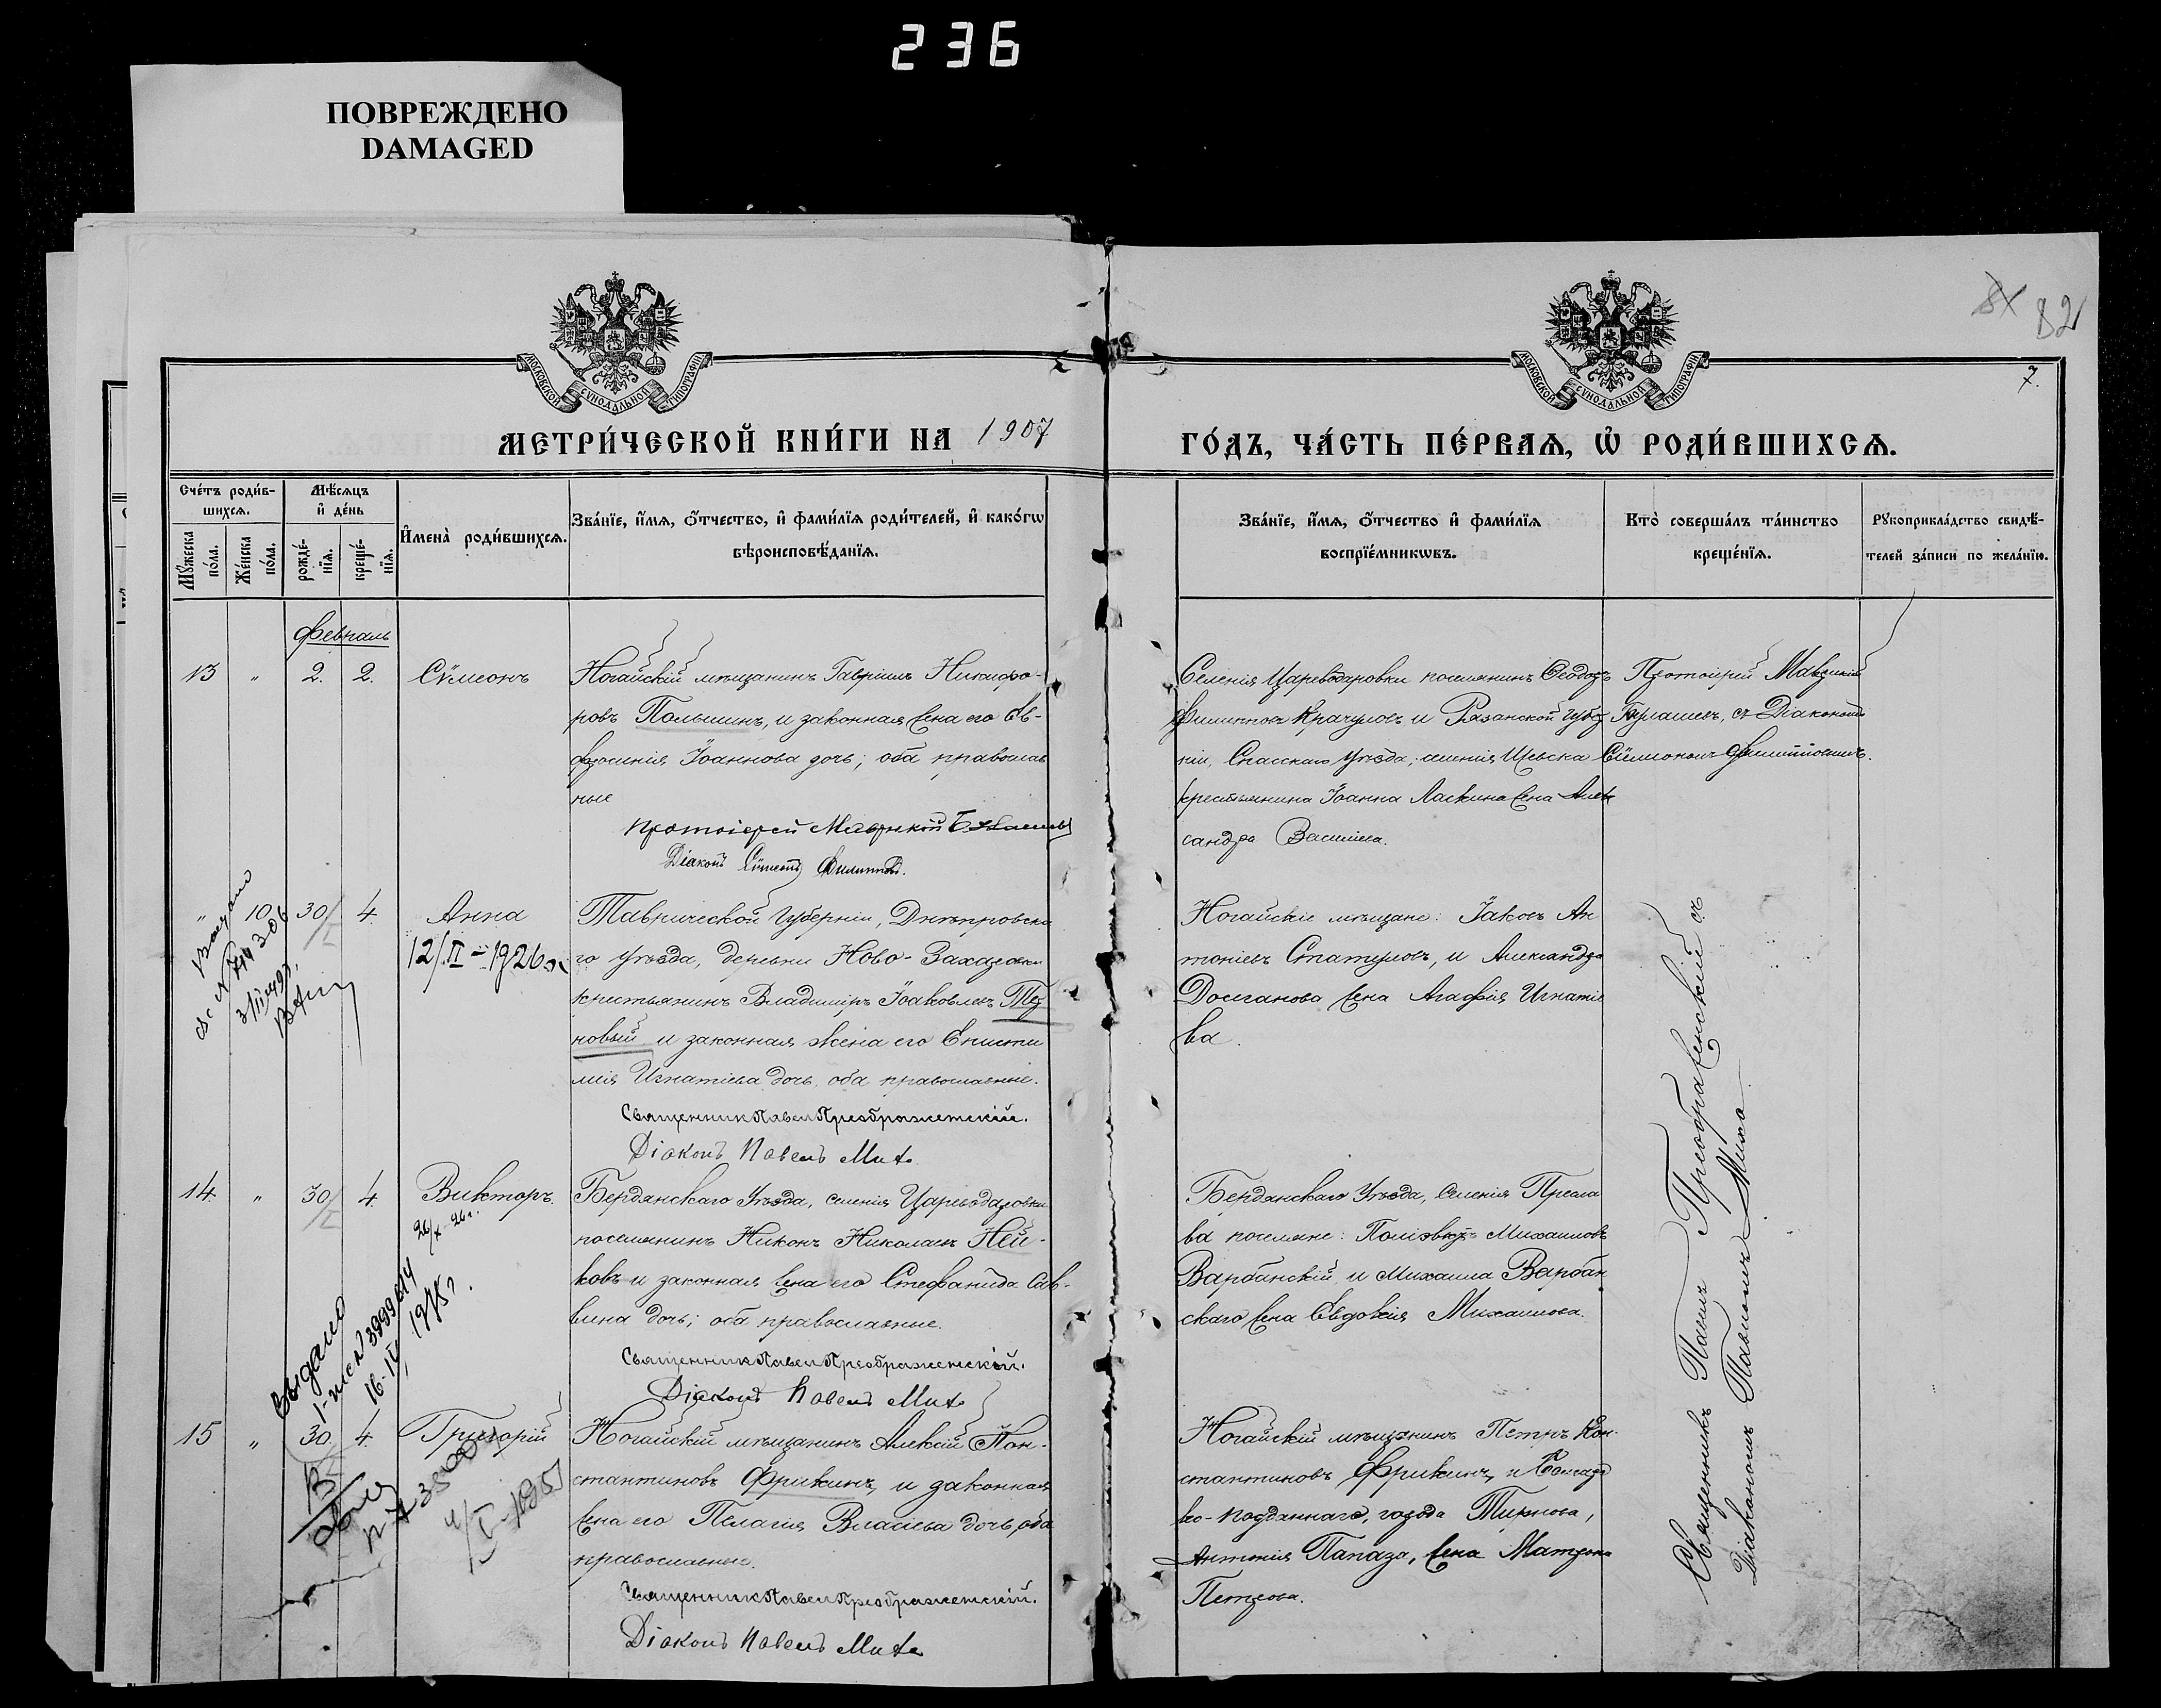 236
ПОВРЕЖДЕНО
DAMAGED
82
7.
МОСКОВСКОЙ СѴНОДАЛЬНОЙ ТИПОГРАФІИ
МОСКОВСКОЙ СѴНОДАЛЬНОЙ ТИПОГРАФІИ
МЕТРИ́ЧЕСКОЙ КНИ́ГИ НА 1907 ГО́ДЪ, ЧА́СТЬ ПЕ́РВАѦ, Ѡ҆ РОДИ́ВШИХСѦ.
Сче́тъ роди́в-
шихсѧ.
Мꙋ́жеска по́ла.
Же́нска по́ла.
Мѣ́сѧцъ
и҆ де́нь
рожде́-
нїѧ.
креще́-
нїѧ.
И҆мена̀ роди́вшихсѧ.
Зва́нїе, и҆́мѧ, ѻ҆́тчество, и҆ фами́лїѧ роди́телей, и҆ како́гѡ
вѣроисповѣ́данїѧ.
Зва́нїе, и҆́мѧ, ѻ҆́тчество и҆ фами́лїѧ
воспрїе́мникѡвъ.
Кто̀ соверша́лъ та́инство
креще́нїѧ.
Рꙋкоприкла́дство свидѣ́-
телей за́писи по жела́нїю.
Февраль
13 " 2. 2. Сѵмеонъ
Ногайскій мѣщанинъ Гавріилъ Никифо-
ровъ Польшинъ, и законная жена его Ев-
фросинія Іоаннова дочь; оба православ
ные
Протоіерей Маврикій
Діаконъ Сѵмеонъ Филипповъ.
Селенія Цареводаровки поселянинъ Ѳеодоръ
Филипповъ Крачуловъ и Рязанской губер
ніи, Спасскаго уѣзда, селенія Ижевска
крестьянина Іоанна Ласкина жена Алек
сандра Васильева.
Протоіерей Маврикій
съ Діакономъ
Сѵмеономъ Филипповымъ.
" 10 30/I 4. Анна
12/II - 1926
Выдано
Таврической губерніи, Днѣпровска
го уѣзда, деревни Ново-Захаровки
крестьянинъ Владиміръ Іаковлевъ Тер
новый и законная жена его Еписти
мія Игнатіева дочь, оба православные.
Священникъ Павелъ Преображенскій.
Діаконъ Павелъ Миха
Ногайскіе мѣщане: Іаковъ Ан
тоніевъ Статуловъ, и Александра
Досганова жена Агафія Игнатіе
ва.
14 " 30/I 4. Викторъ.
26/X-26г.
Выдано
16-IV 1975г.
Бердянскаго уѣзда, селенія Цареводаровки
поселянинъ Никонъ Николаевъ Ней-
ковъ и законная жена его Стефанида Сав-
вина дочь; оба православные.
Священникъ Павелъ Преображенскій.
Діаконъ Павелъ Миха
Бердянскаго уѣзда, селенія Пресла
ва поселяне: Поліэвктъ Михаиловъ
Варбанскій и Михаила Варбан
скаго жена Евдокія Михаилова.
15 " 30. 4. Григорій
Ногайскій мѣщанинъ Алексій Кон-
стантиновъ Фрикинъ, и законная
жена его Пелагія Власіева дочь, оба
православные.
Священникъ Павелъ Преображенскій.
Діаконъ Павелъ Миха
Ногайскій мѣщанинъ Петръ Кон-
стантиновъ Фрикинъ, и
ко-подданнаго, города Тирнова,
Антонія Папазо, жена Матрона
Петрова.
Священникъ Павелъ Преображенскій съ
Діакономъ Павломъ Миха